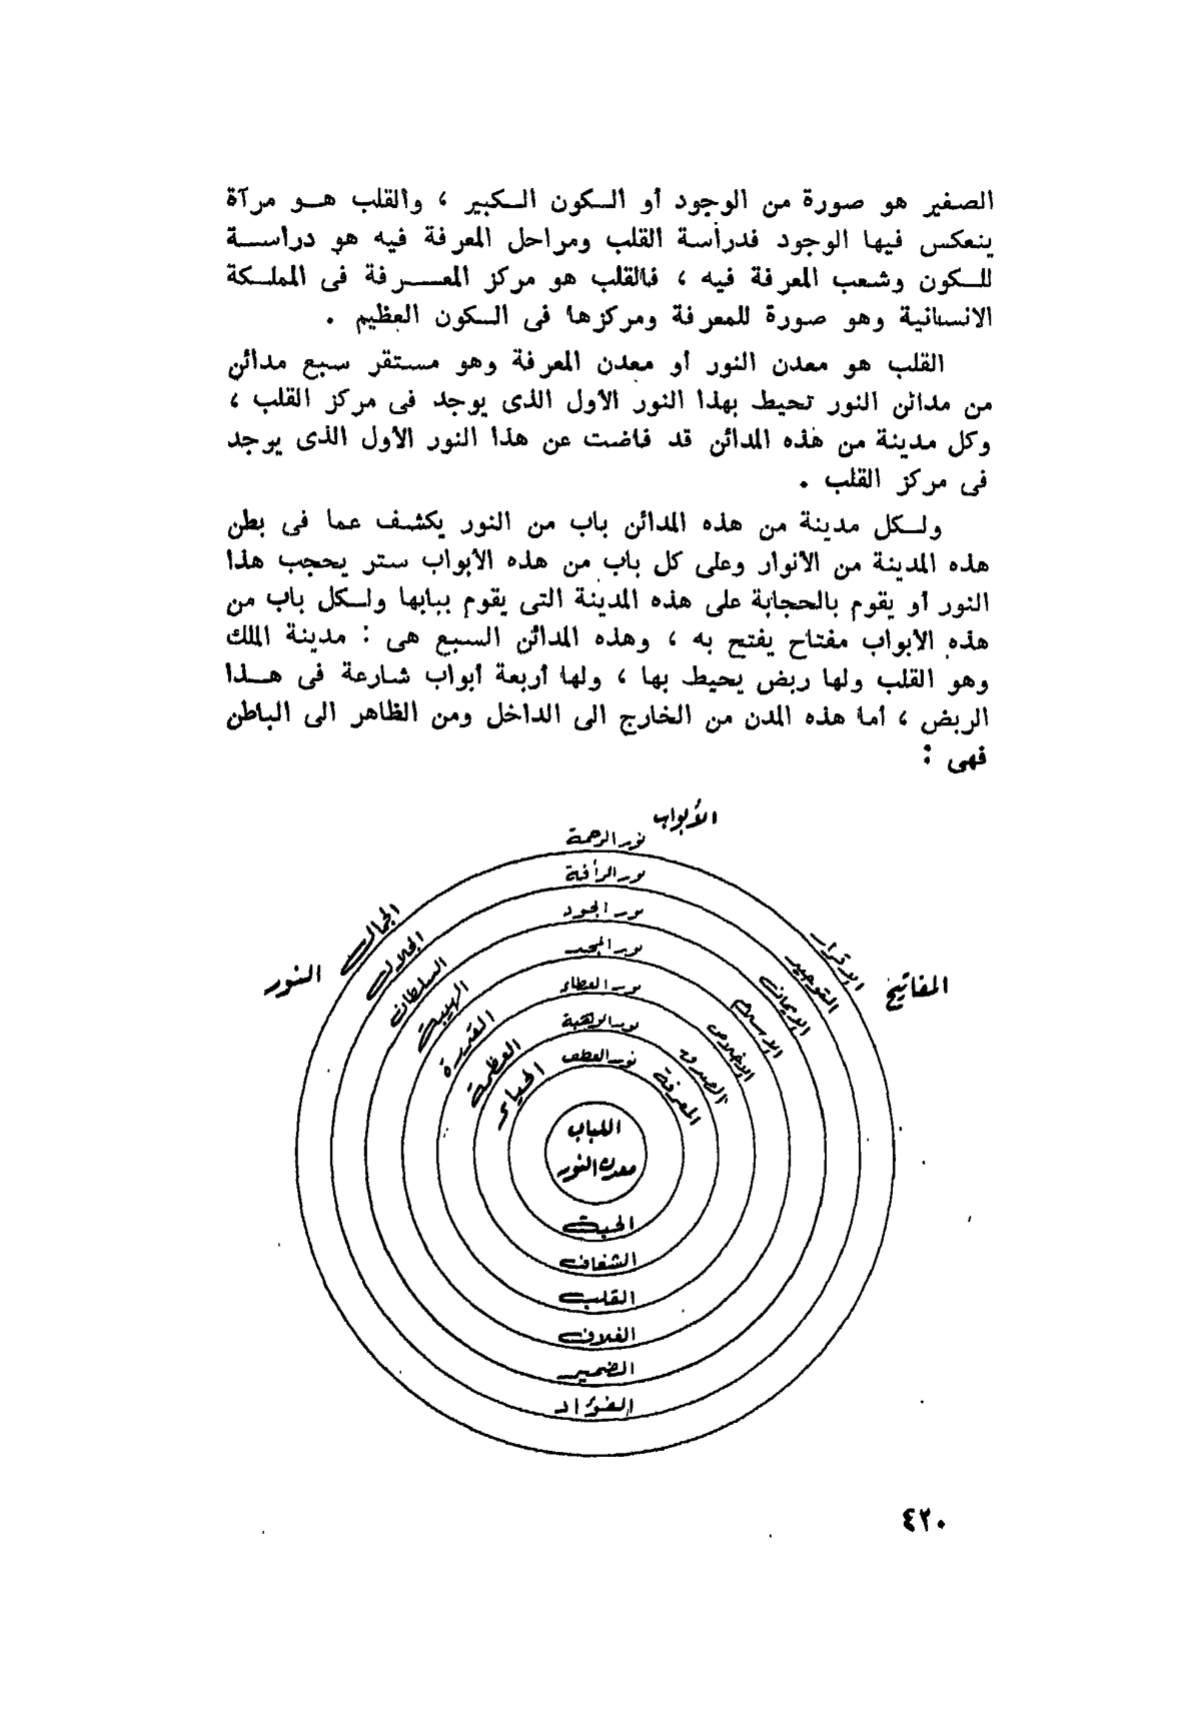 الصغير هو صورة من الوجود أو الكون الكبير ، والقلب هو مرآة
ينعكس فيها الوجود فدراسة القلب ومراحل المعرفة فيه هو دراسة
للكون وشعب المعرفة فيه ، فالقلب هو مركز المعرفة فى المملكة
الانسانية وهو صورة للمعرفة ومركزها فى الكون العظيم .
القلب هو معدن النور أو معدن المعرفة وهو مستقر سبع مدائن
من مدائن النور تحيط بهذا النور الأول الذى يوجد فى مركز القلب ،
وكل مدينة من هذه المدائن قد فاضت عن هذا النور الأول الذى يوجد
فى مركز القلب .
ولكل مدينة من هذه المدائن باب من النور يكشف عما فى بطن
هذه المدينة من الأنوار وعلى كل باب من هذه الأبواب ستر يحجب هذا
النور أو يقوم بالحجابة على هذه المدينة التى يقوم ببابها ولكل باب من
هذه الأبواب مفتاح يفتح به ، وهذه المدائن السبع هى : مدينة الملك
وهو القلب ولها ربض يحيط بها ، ولها أربعة أبواب شارعة فى هذا
الربض ، أما هذه المدن من الخارج الى الداخل ومن الظاهر الى الباطن
فهى :
الأبواب
نور الرحمة
نور الرأفة
نور الجود
نور المجد
نور العطاء
نور الوهبة
نور العطف
النور
الجمال
الجلال
السلطان
الهيبة
القدرة
العظمة
الحياء
المفاتيح
الاقرار
التوحيد
الايمان
الاسلام
الاخلاص
الصدق
المعرفة
اللباب
معدن النور
الحبة
الشغاف
القلب
الغلاف
الضمير
الفؤاد
٤٢٠